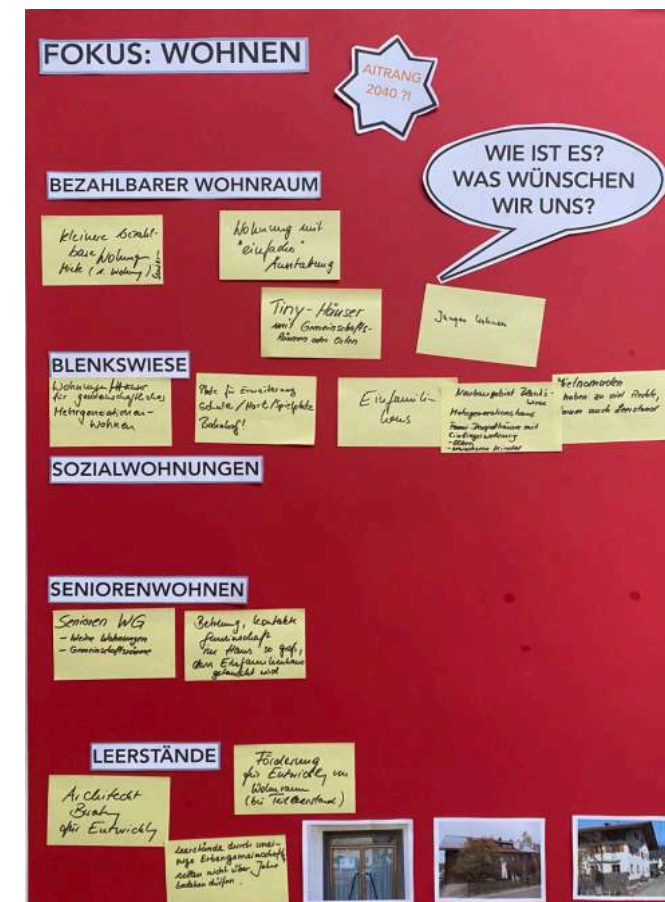 FOKUS: WOHNEN
AITRANG
2040 ?!
WIE IST ES?
WAS WÜNSCHEN
WIR UNS?
BEZAHLBARER WOHNRAUM
kleinere bezahl-
bare Wohnungen
Miete (1. Wohnung)
Wohnung mit
"einfacher"
Ausstattung
Tiny-Häuser
mit Gemeinschafts-
räumen oder Orten
Junges Wohnen
BLENKSWIESE
Wohnungen
für gemeinschaftliches
Mehrgenerationen-
Wohnen
Platz für Erweiterung
Schule / Hort / Spielplatz
Bahnhof!
Einfamilien
haus
Neubaugebiet
Mehrgenerationenhaus
Doppelhäuser mit
Einliegerwohnung
haben zu viel Rechte,
auch Leerstand
SOZIALWOHNUNGEN
SENIORENWOHNEN
Senioren WG
- kleine Wohnungen
- Gemeinschaftsräume
Betreuung, Kontakte
Gemeinschaft
im Haus so groß,
dass Einfamilienhaus
getauscht wird
LEERSTÄNDE
Förderung
für Entwicklg von
Wohnraum
(bei Teilleerstand)
Architekt
für Entwicklg
Leerstände durch unei-
nige Erbengemeinschaft
sollten nicht über Jahre
bestehen dürfen.